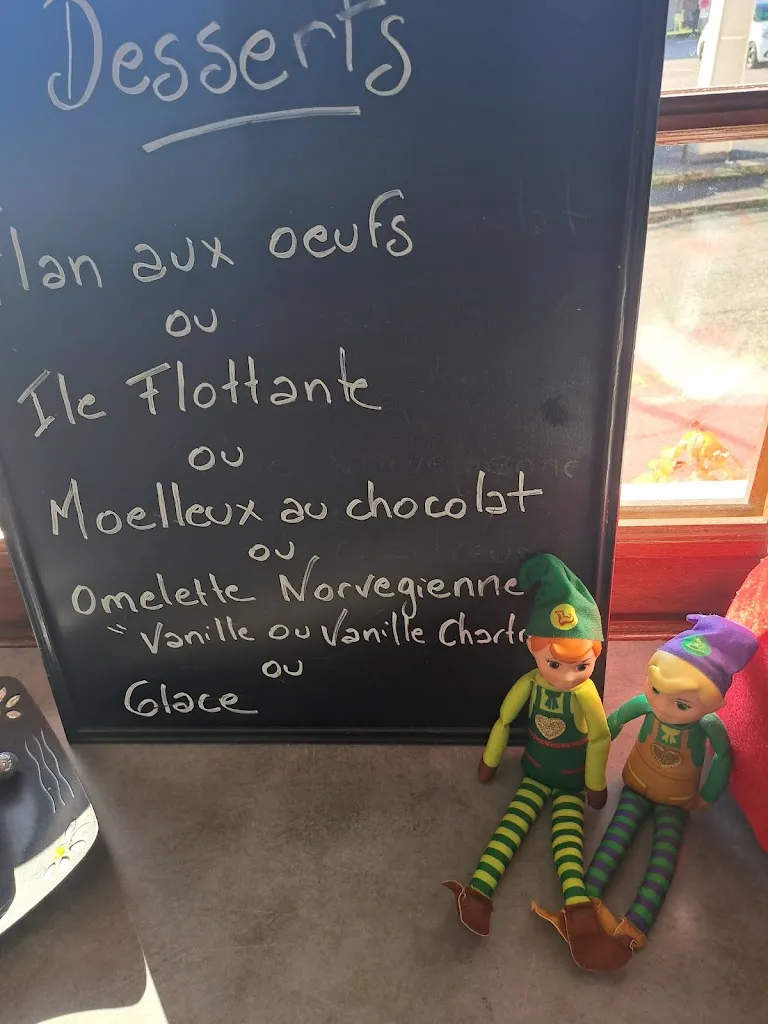 Desserts
Flan aux oeufs
ou
Ile Flottante
ou
Moelleux au chocolat
ou
Omelette Norvegienne
"Vanille ou Vanille Chartr
ou
Glace